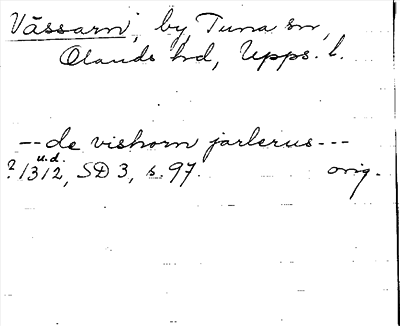 Vässarn, by, Tuna sn,
Olands hrd, Upps. l.
--de vishorn jarlerus---
u.d.
? 1312, SD 3, s. 97. orig.